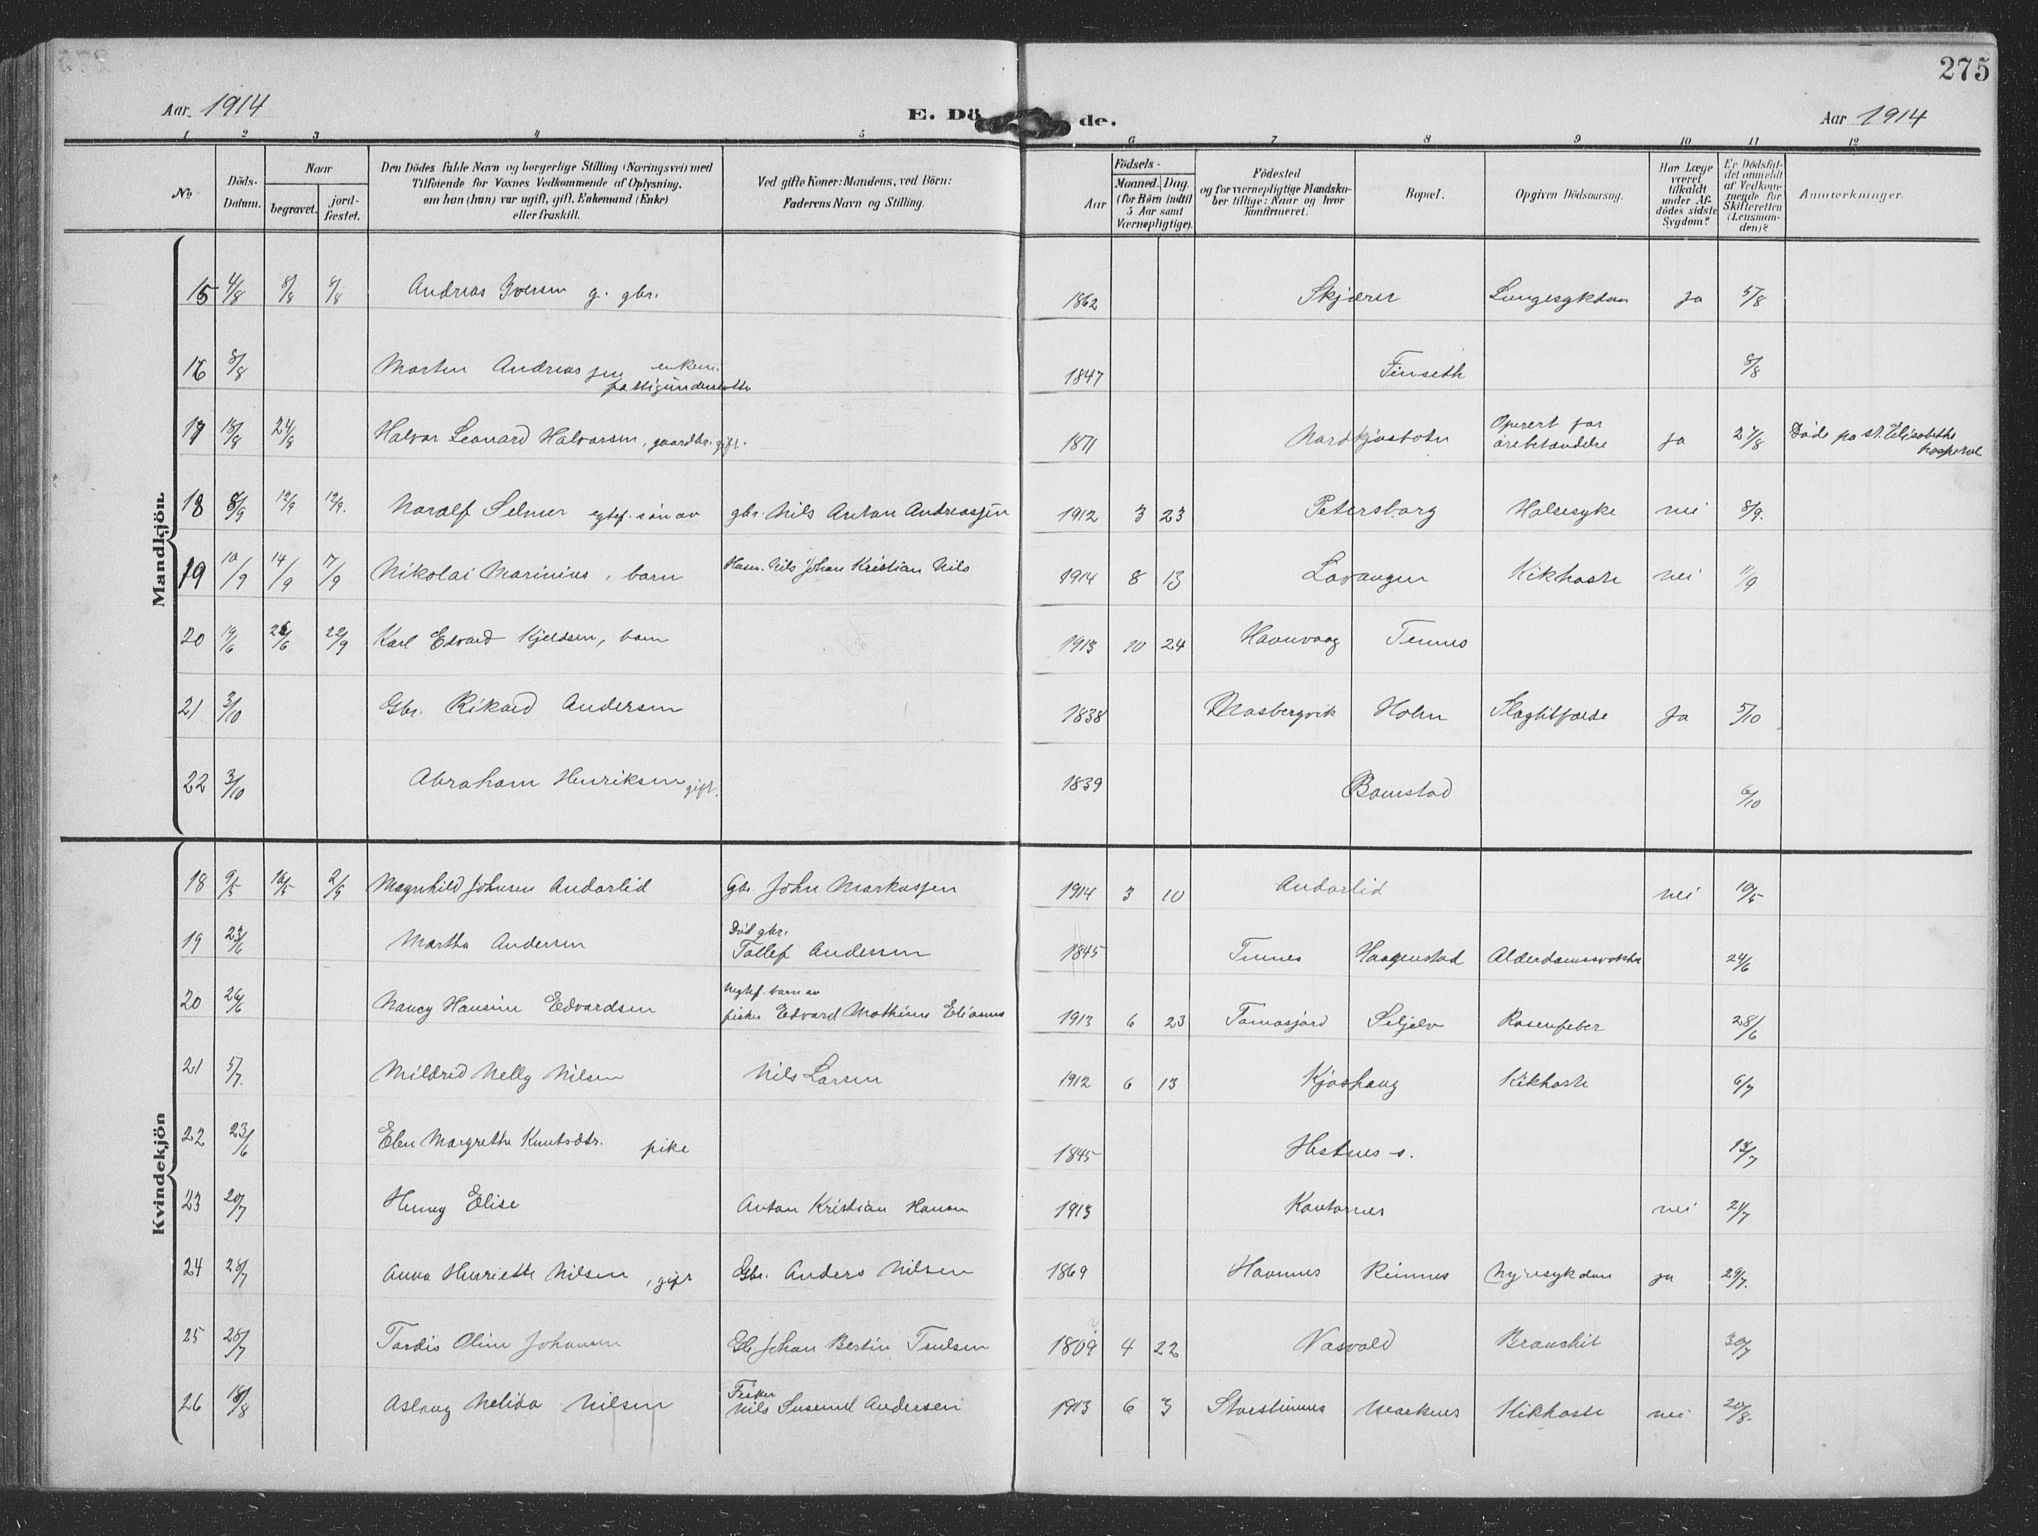 275
Aar 1914
E. Dö de.
Aar 1914
1 2 3 4 5 6 7 8 9 10 11 12
No.
Döds-Datum.
Naar
begravet.
jord-fæstet.
Den Dödes fulde Navn og borgerlige Stilling (Næringsvei) med
Tilföiende for Voxnes Vedkommende af Oplysning,
om han (hun) var ugift, gift, Enkemand (Enke)
eller fraskilt.
Ved gifte Koner: Mandens, ved Börn:
Faderens Navn og Stilling.
Födsels-
Aar
Maaned. Dag.
(for Börn indtil
5 Aar samt
Værnepligtige).
Födested
og for værnepligtige Mandska-
ber tillige: Naar og hvor
konfirmeret.
Bopæl.
Opgiven Dödsaarsag.
Har Læge
været
tilkaldt
under Af-
dödes sidste
Sygdom?
Er Dödsfal-
det anmeldt
af Vedkom-
mende for
Skifteretten
(Lensman-
den)?
Anmerkninger.
Mandkjön.
15 4/8 8/8 8/8 Andreas Iversen g. gbr. 1862 Skjæret Lungesykdom ja 5/8
16 8/8 Martin Andreassen enkem. 1847 Finseth 8/8
17 18/8 24/8 Halvar Leonard Halvorsen, gaardbr. gift. 1871 Nordkjosbotn Operert for ja 27/8 Döde pa st. Elisabeths
hospital
18 8/9 12/9 12/9. Noralf Selmer egtef. sön av gbr. Nils Anton Andreassen 1912 3 23 Petersborg Halsesyke nei 8/9.
19 10/9 14/9 17/9 Nikolai Marinius, barn Nils Johan Kristian Nils 1914 8 13 Lavangen Kikhoste nei 11/9
20 19/6 26/6 22/9 Karl Edvard Kjeldsen, barn 1913 10 24 Havnvaag Tennes
21 3/10 Gbr. Rikard Andersen 1838 Mosbergvik Holm Slagtilfælde Ja 5/10
22 3/10 Abraham Henriksen gift. 1839 Bomstad 6/10
Kvindekjön
18 9/5 16/5 2/9 Magnhild Johnsen Andorlid Gbr. John Markussen 1914 3 10 Andorlid nei 10/5
19 23/6 Martha Andersen Död gbr.
Tollef Andersen 1845 Tennes Haagenstad 24/6
20 26/6 Nancy Hansine Edvardsen uegtef. barn av
fisker Edvard Matheus Elias 1913 6 23 Tomasjord Seljelv Rosenfeber 28/6
21 5/7. Mildred Nelly Nilsen Nils Larsen 1912 6 13 Kjoshaug Kikhoste 6/7
22 23/6 Elen Margrethe Knutsdtr. pike 1845 Hestnes s. 13/7
23 20/7 Henny Elise Anton Kristian Hansen 1913 Kantornes nei 24/7
24 28/7 Anna Henriette Nilsen, gift Gbr. Anders Nilsen 1869 Havnnes Rennes Nyresykdom ja 29/7.
25 28/7 Tordis Oline Johansen Johan Bertin 1809 4 22 Vasvold Bronchit 30/7
26 18/8 Aslaug Melida Nilsen Fisker
Nils Andersen 1913 6 3 Storstennes Marknes Kikhoste nei 20/8.